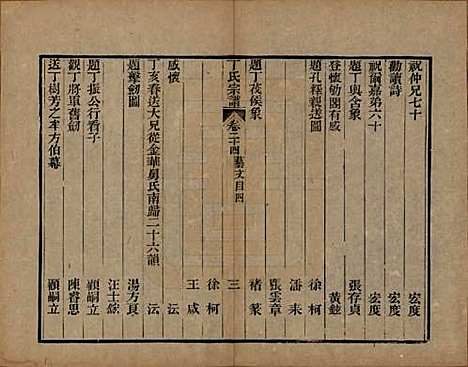 祝仲兄七十 宏度
勸讀詩 宏度
祝爾嘉弟六十 宏度
丁與含象 張存貞
登懷勛閣有感 黃鉉
題孔釋親送圖 徐柯
潘耒
題丁茷侯象 張雲章
褚篆
丁氏宗譜 卷二十四藝文目四 三
徐柯
感懷 王咸
丁亥春送大兄從金華舅氏南歸二十六韻 沄
題擊劒圖 沄
湯方夏
題丁振公行看子 汪士鋐
顧嗣立
觀丁將軍舊劒 陳睿思
送丁樹芳之牟方伯幕 顧嗣立